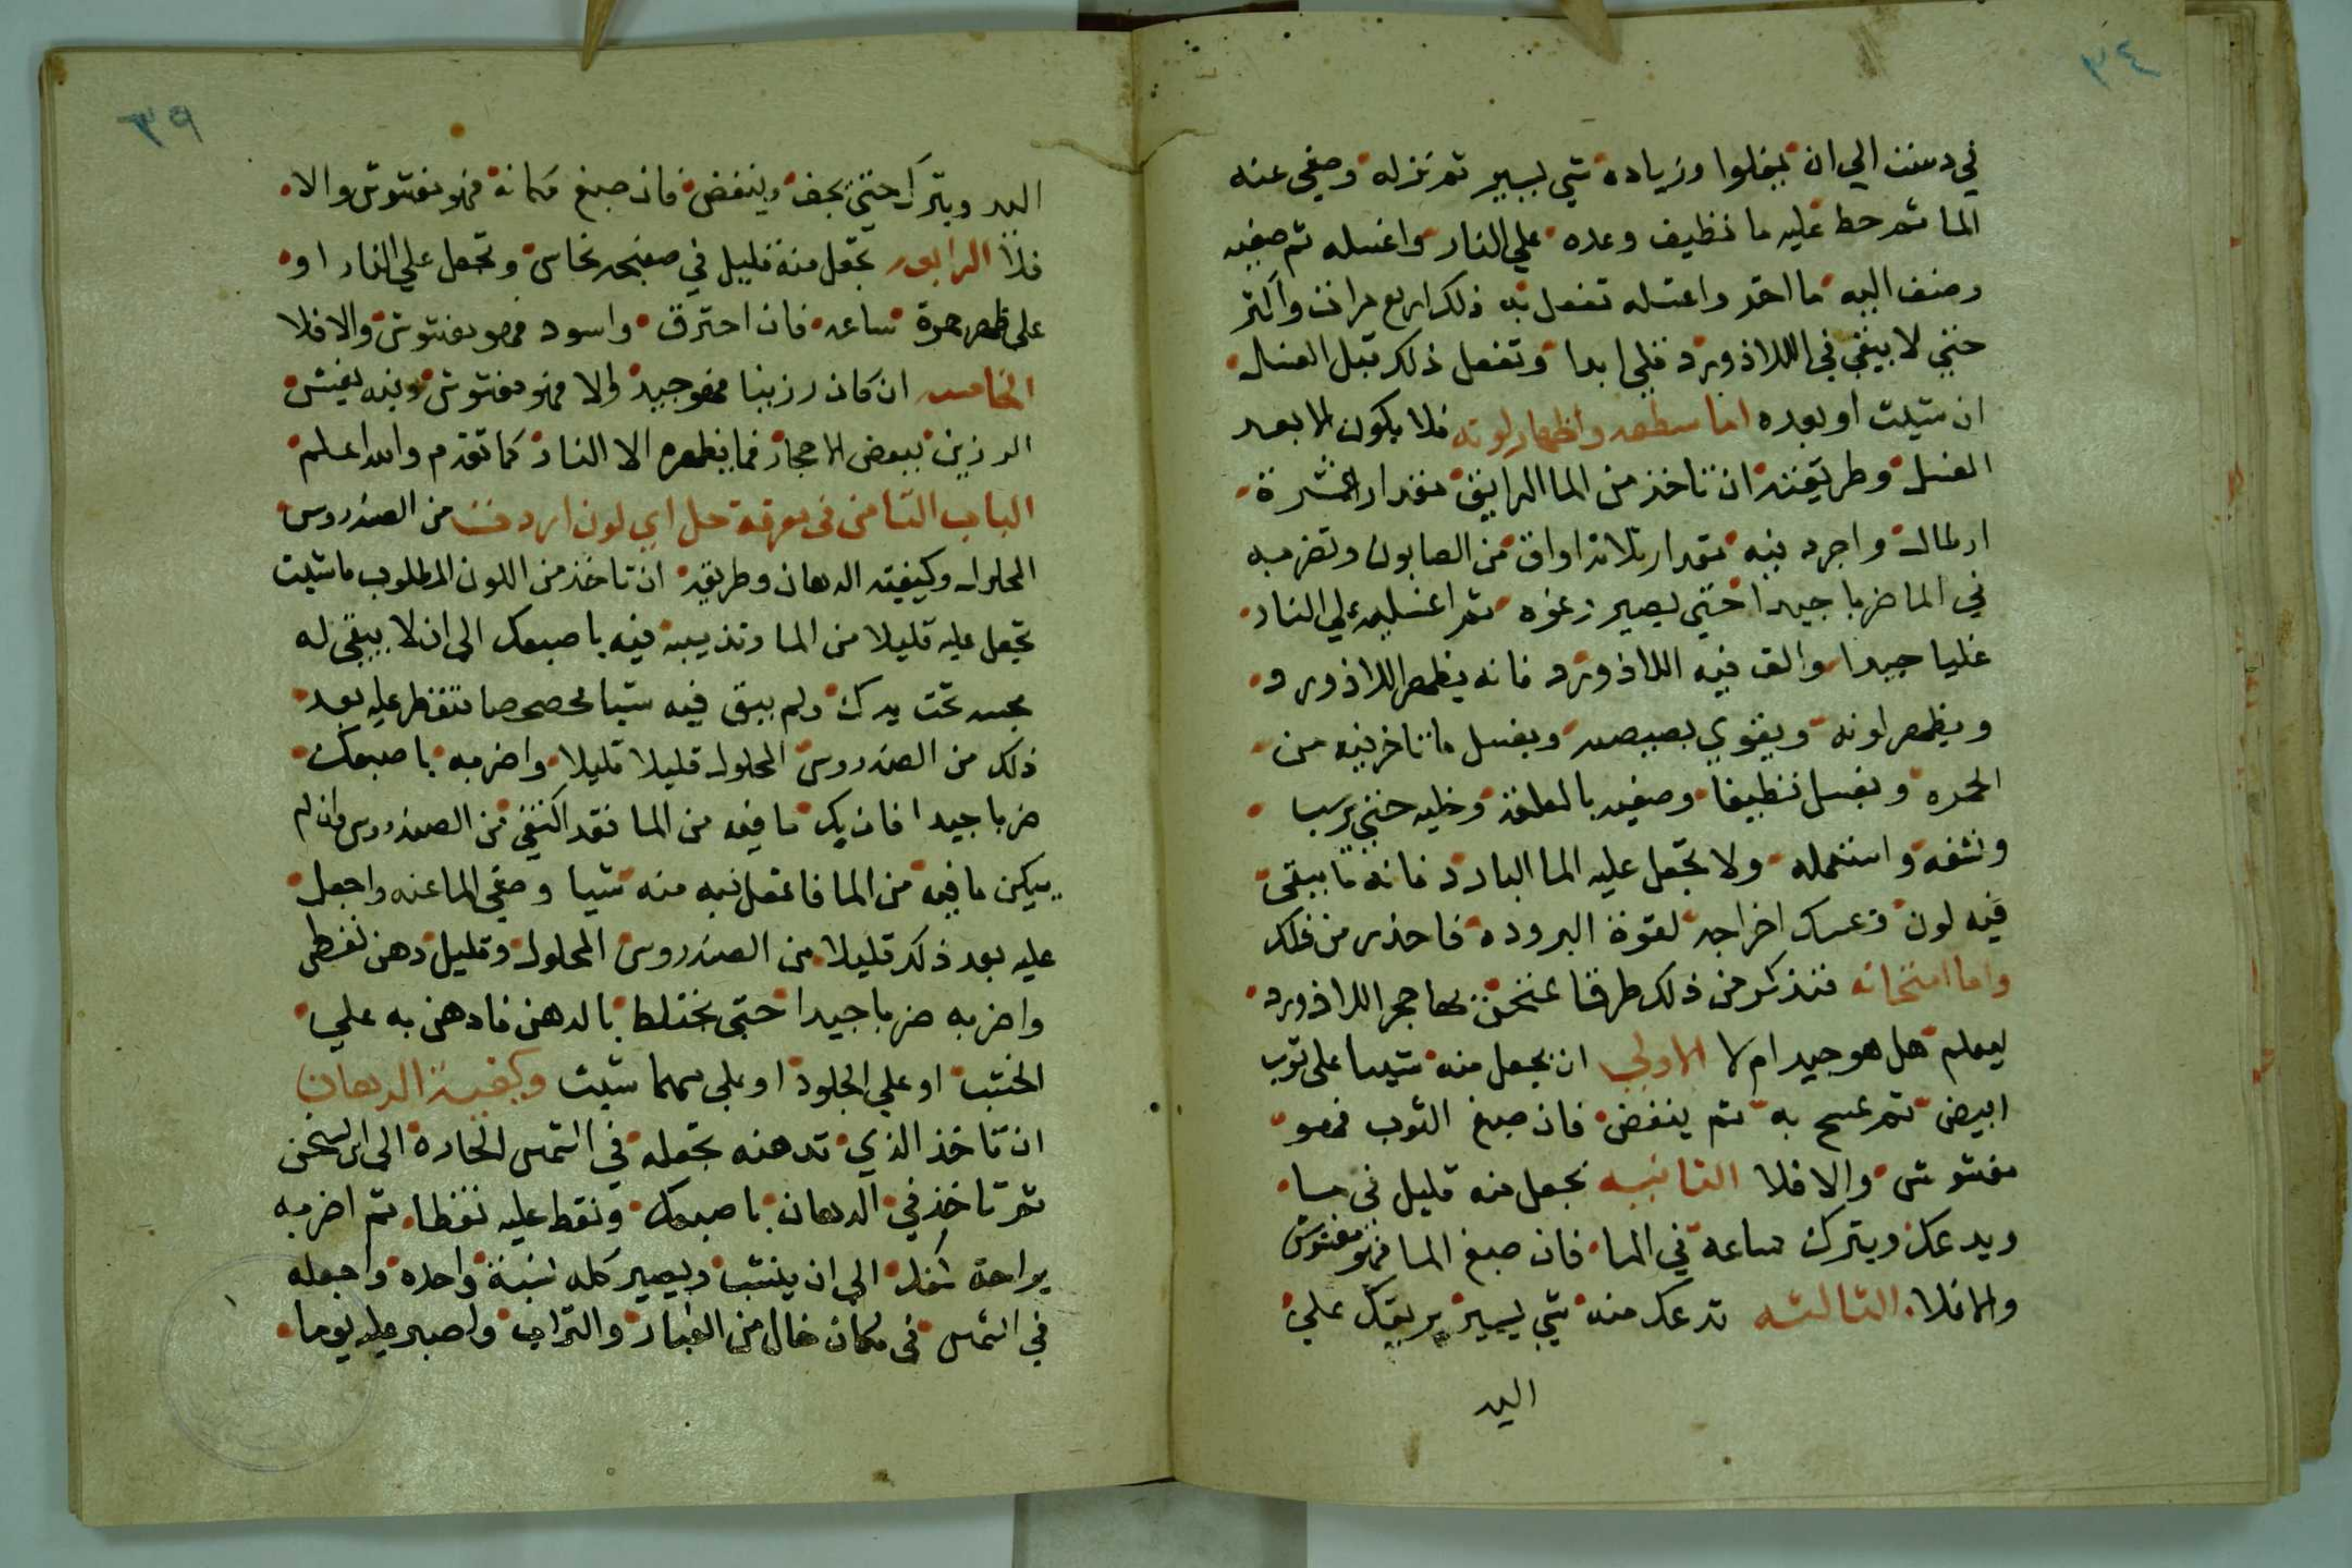 ٣٤
في دست الي ان يغلوا وزياده شي يسير ثم نزله وصفي عنه
الما ثم حط عليه ما نظيف وعده علي النار واغسله ثم صفيه
وضف اليه ما اخر واغسله تفعل به ذلك اربع مرات واكثر
حتي لا يبقي في اللاذورد قلي ابدا وتفعل ذلك قبل الغسال
ان شيت او بعده اما سطعه واظهار لونه فلا يكون الا بعد
الغسل وطريقته ان تاخذ من الما الرايق مقدار عشرة
ارطال واجرد فيه مقدار ثلاثة اواق من الصابون وتضربه
في الما ضربا جيدا حتي يصير رغوه ثم اغليه علي النار
غليا جيدا والق فيه اللاذورد فانه يظهر اللاذورد
ويظهر لونه ويقوي بصيصه ويغسل ما تاخر فيه من
الحمره ويغسل نظيفا وصفيه بالعلقة وخليه حتي يرسب
ونشفه واستعمله ولا تجعل عليه الما البارد فانه ما يبقي
فيه لون وعسك اخراجه لقوة البروده فاحذر من ذلك
واما امتحانه فنذكر من ذلك طرقا تمتحن بها حجر اللاذورد
ليعلم هل هو جيد ام لا الاولي ان يجعل منه شيا علي ثوب
ابيض ثم تمسح به ثم ينفض فان صبغ الثوب فهو
مغشوش والا فلا الثانيه تجعل منه قليل في ما
ويدعك ويترك ساعة في الما فان صبغ الما فهو مغشوش
والا فلا الثالثه تدعك منه شي يسير بريقك علي
اليد
٣٥
اليد ويترك حتي يجف وينفض فان صبغ مكانه فهو مغشوش والا
فلا الرابعه تجعل منه قليل في صفيحه نحاس وتجعل علي النار او
علي ظهر جمرة ساعه فان احترق واسود فهو مغشوش والا فلا
الخامسه ان كان رزينا فهو جيد والا فهو مغشوش وفيه يغش
الرزين ببعض الاحجار فما يظهره الا النار كما تقدم والله اعلم
الباب الثامن في معرفة حل اي لون اردت من الصندروس
المحلول وكيفيته الدهان وطريقه ان تاخذ من اللون المطلوب ما شيت
تجعل عليه قليلا من الما وتذيبه فيه باصبعك الي ان لا يبقي له
مجسه تحت يدك ولم يبق فيه شيا محصحصا فتقطر عليه بعد
ذلك من الصندروس المحلول قليلا قليلا واضربه باصبعك
ضربا جيدا فان يك ما فيه من الما فقد اكتفي من الصندروس وان لم
يكن ما فيه من الما فاعقل فيه منه شيا وصفي الما عنه واجعل
عليه بعد ذلك قليلا من الصندروس المحلول وقليل دهن نفطي
واضربه ضربا جيدا حتي يختلط بالدهن فادهن به علي
الخشب او علي الجلود او علي مهما شيت وكيفية الدهان
ان تاخذ الذي تدهنه تجعله في الشمس الحارة الي ان يسخن
ثم تاخذ في الدهان باصبعك ونقط عليه نقطا ثم اضربه
براحة كفك الي ان ينشب ويصير كله نسبة واحده واجعله
في الشمس في مكان خال من الغبار والتراب واصبر عليه يوما